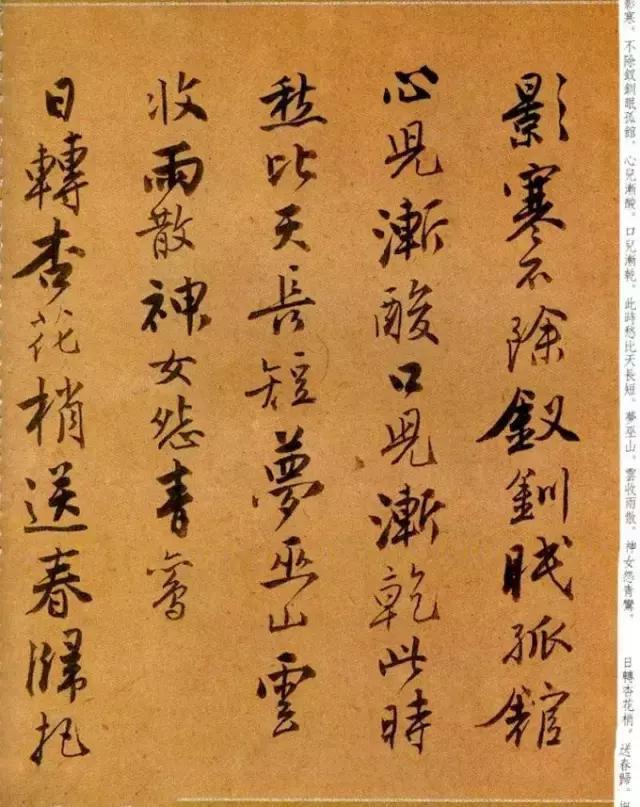 影寒。不除釵釧眠孤館。心兒漸酸。口兒漸乾。此時愁比天長短。夢巫山。雲收雨散。神女怨青鸞。　日轉杏花梢。送春歸。
影寒不除釵釧眠孤館
心兒漸酸口兒漸乾此時
愁比天長短夢巫山雲
收雨散神女怨青鸞
日轉杏花梢送春歸把